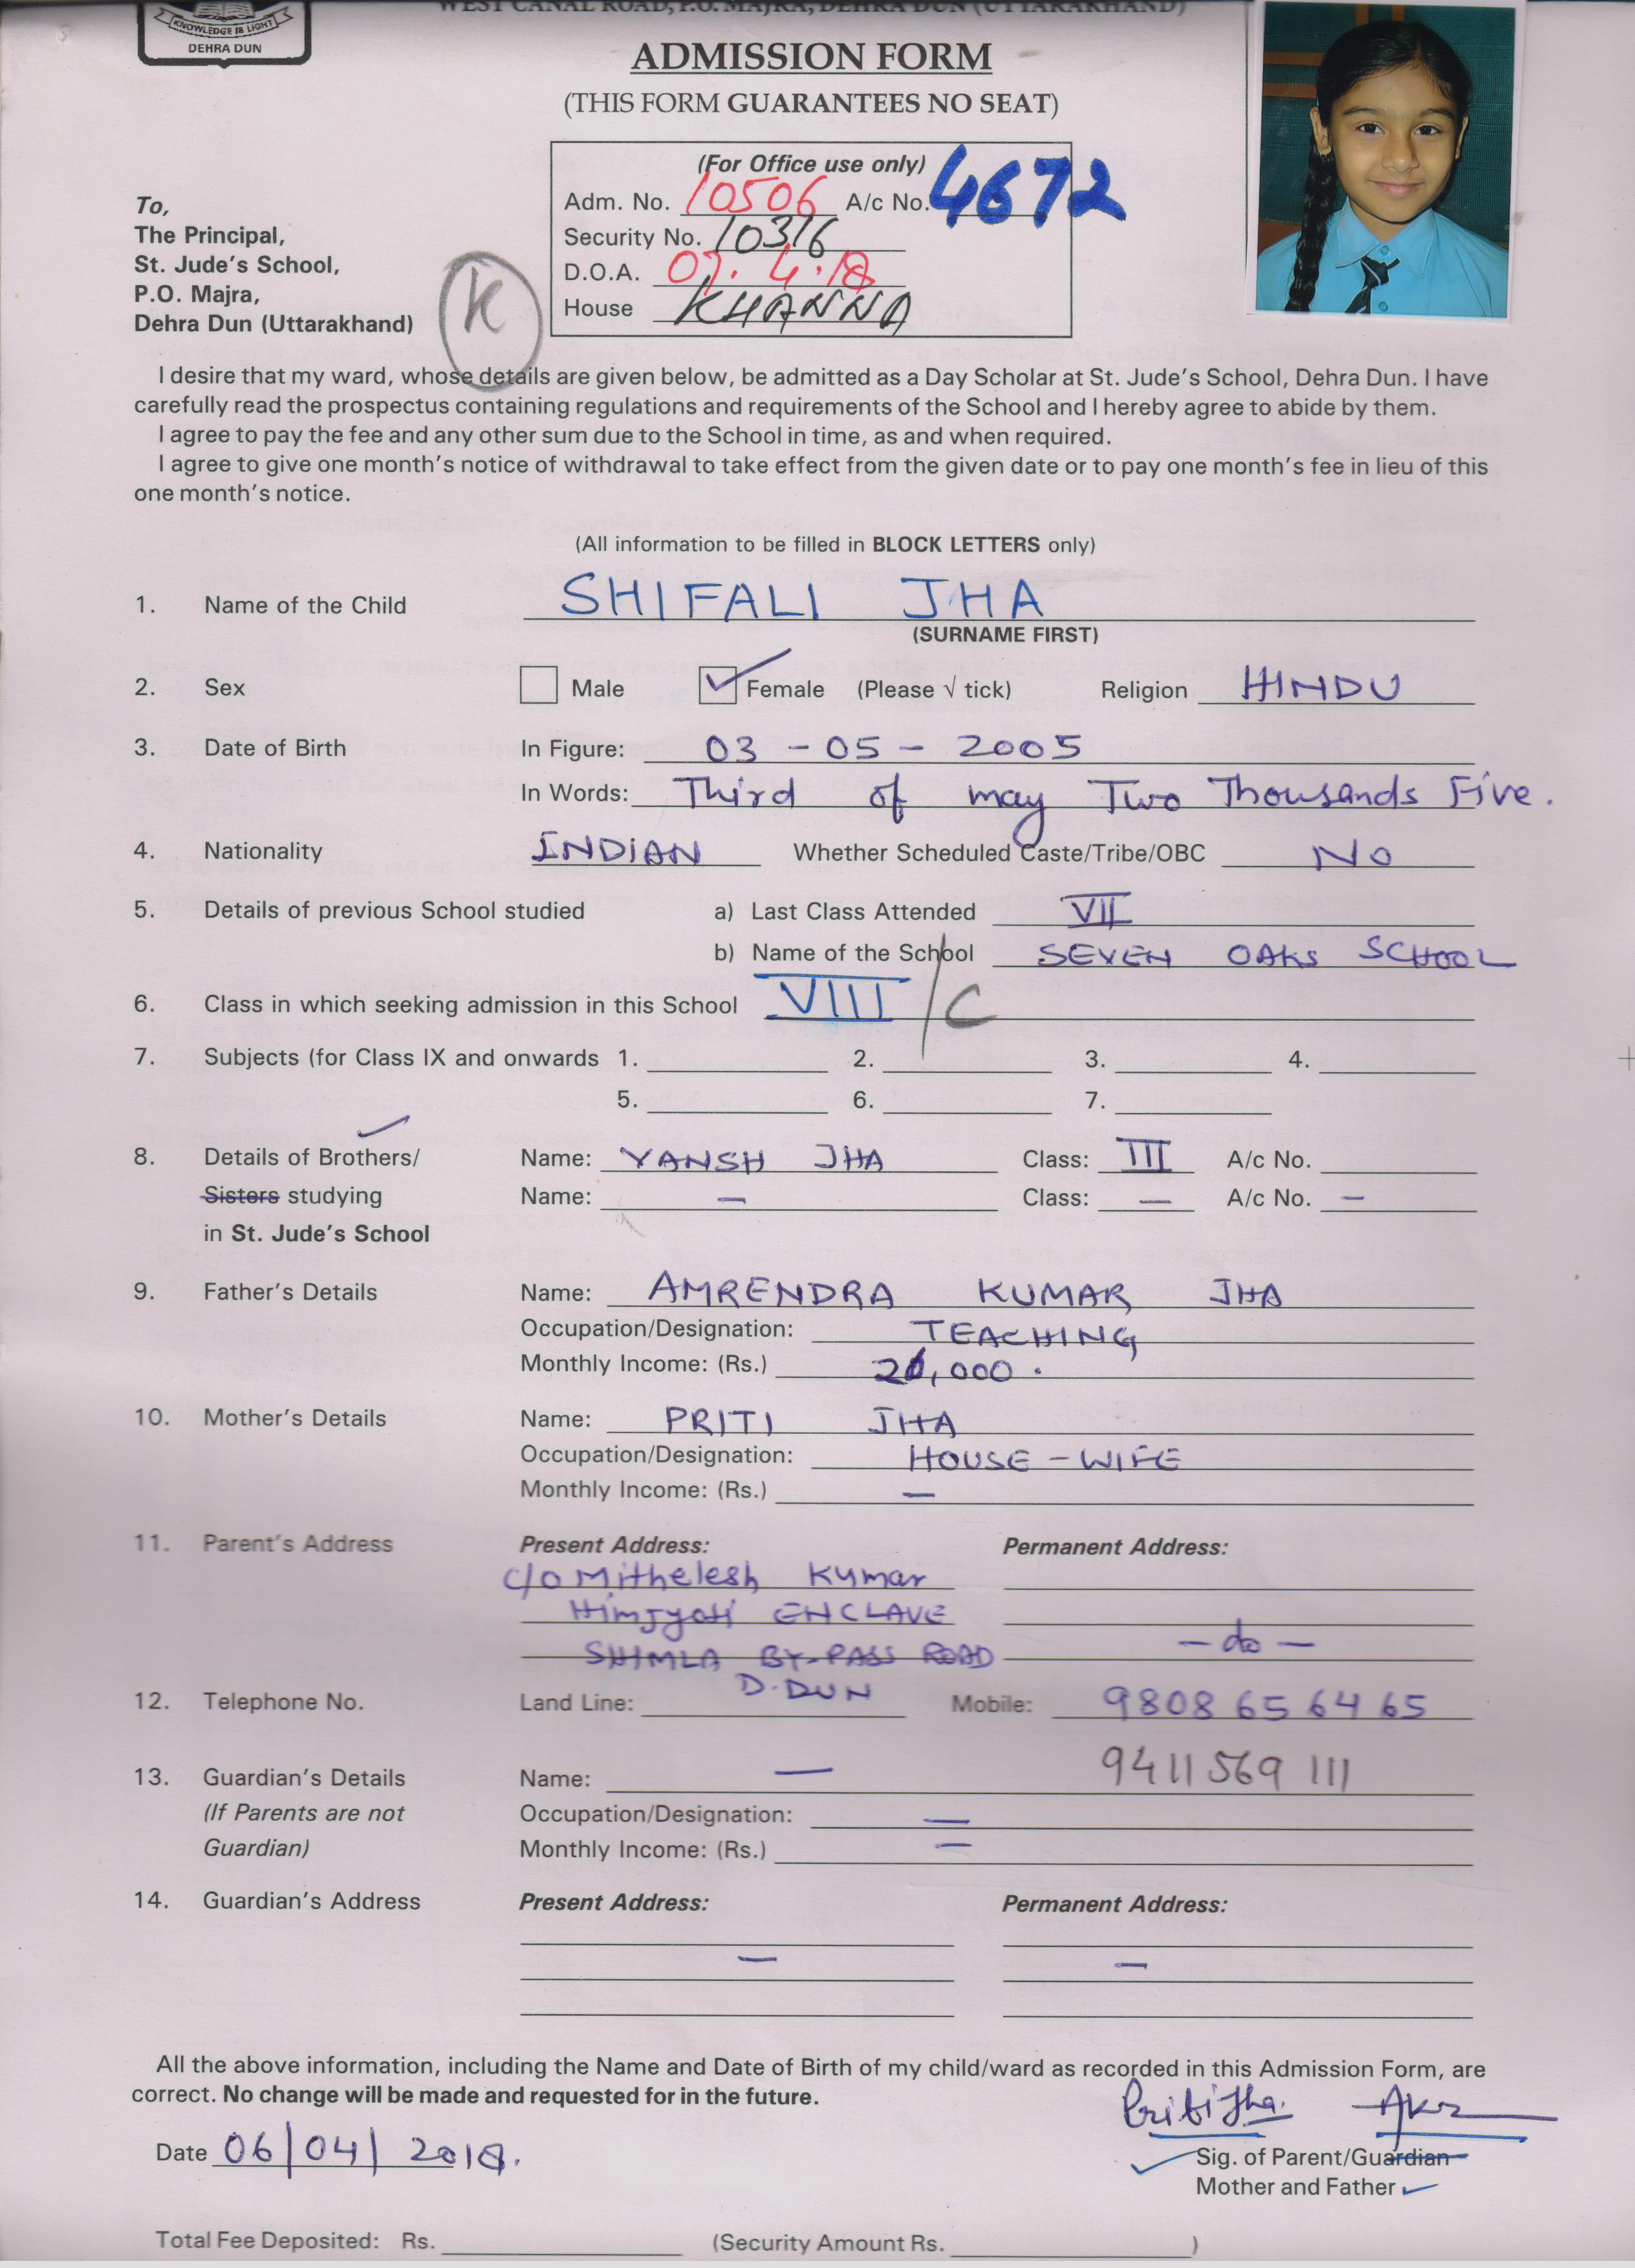 WEST CANAL ROAD, P.O. MAJRA, DEHRA DUN (UTTARAKHAND)
KNOWLEDGE IS LIGHT
DEHRA DUN
ADMISSION FORM
(THIS FORM GUARANTEES NO SEAT)
(For Office use only)
Adm. No. 10506 A/c No. 4672
Security No. 10316
D.O.A. 07.4.18
House KHANNA
To,
The Principal,
St. Jude's School,
P.O. Majra,
Dehra Dun (Uttarakhand)
K
I desire that my ward, whose details are given below, be admitted as a Day Scholar at St. Jude's School, Dehra Dun. I have
carefully read the prospectus containing regulations and requirements of the School and I hereby agree to abide by them.
I agree to pay the fee and any other sum due to the School in time, as and when required.
I agree to give one month's notice of withdrawal to take effect from the given date or to pay one month's fee in lieu of this
one month's notice.
(All information to be filled in BLOCK LETTERS only)
1. Name of the Child SHIFALI JHA
(SURNAME FIRST)
2. Sex Male Female (Please √ tick) Religion HINDU
3. Date of Birth In Figure: 03 - 05 - 2005
In Words: Third of may Two Thousands Five.
4. Nationality INDIAN Whether Scheduled Caste/Tribe/OBC NO
5. Details of previous School studied a) Last Class Attended VII
b) Name of the School SEVEN OAKS SCHOOL
6. Class in which seeking admission in this School VIII /C
7. Subjects (for Class IX and onwards 1. 2. 3. 4.
5. 6. 7.
8. Details of Brothers/ Name: VANSH JHA Class: III A/c No.
Sisters studying Name: — Class: — A/c No. —
in St. Jude's School
9. Father's Details Name: AMRENDRA KUMAR JHA
Occupation/Designation: TEACHING
Monthly Income: (Rs.)
10. Mother's Details Name: PRITI JHA
Occupation/Designation: HOUSE - WIFE
Monthly Income: (Rs.) —
11. Parent's Address Present Address: Permanent Address:
C/O Mithelesh Kumar
Himjyoti ENCLAVE
SHIMLA BY-PASS ROAD - do -
D.DUN
12. Telephone No. Land Line: Mobile: 9808 65 64 65
9411 569 111
13. Guardian's Details Name: —
(If Parents are not Occupation/Designation: —
Guardian) Monthly Income: (Rs.) —
14. Guardian's Address Present Address: Permanent Address:
— —
All the above information, including the Name and Date of Birth of my child/ward as recorded in this Admission Form, are
correct. No change will be made and requested for in the future.
Priti Jha.
Date 06/04/2018.
Sig. of Parent/Guardian
Mother and Father
Total Fee Deposited: Rs. (Security Amount Rs. )